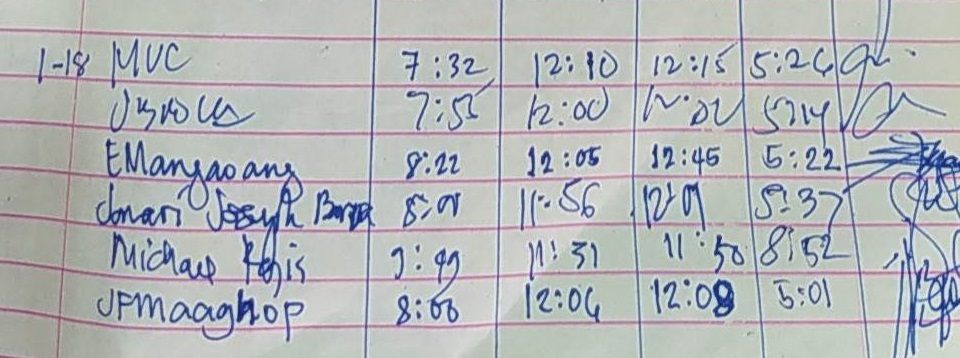 1-18 MVC 7:32 12:10 12:15 5:26
7:55 12:00 12:02 5:14
EMangaoang 8:22 12:05 12:45 5:22
Jomari Joseph 8:01 11:56 12:01 5:37
Michael 11:31 11:50 8:52
JPMaaghop 8:00 12:06 12:08 5:01